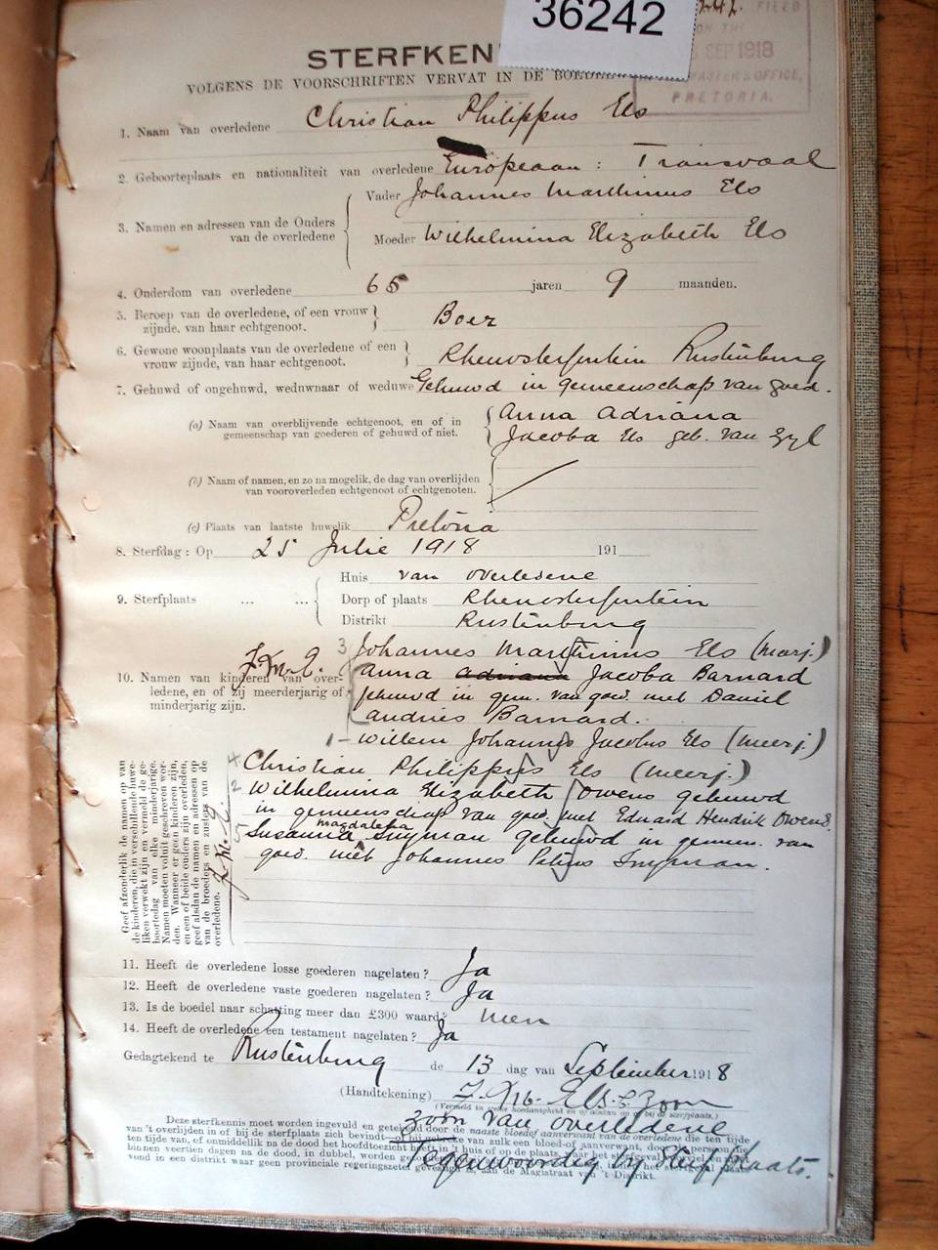 36242
FILED
ON THE
SEP 1918
MASTER'S OFFICE,
PRETORIA.
STERFKEN
VOLGENS DE VOORSCHRIFTEN VERVAT IN DE
1. Naam van overledene Christian Philippus Els
2. Geboorteplaats en nationaliteit van overledene Europeaan : Transvaal
Vader Johannes Marthinus Els
3. Namen en adressen van de Ouders
van de overledene
Moeder Wilhelmina Elizabeth Els
4. Onderdom van overledene 65 jaren 9 maanden.
5. Beroep van de overledene, of een vrouw
zijnde, van haar echtgenoot. Boer
6. Gewone woonplaats van de overledene of een
vrouw zijnde, van haar echtgenoot. Rhenosterfontein Rustenburg
7. Gehuwd of ongehuwd, weduwnaar of weduwe Gehuwd in gemeenschap van goed.
(a) Naam van overblijvende echtgenoot, en of in
gemeenschap van goederen of gehuwd of niet.
Anna Adriana
Jacoba Els geb. van Zyl
(b) Naam of namen, en zo na mogelik, de dag van overlijden
van vooroverleden echtgenoot of echtgenoten.
(c) Plaats van laatste huwelik Pretoria
8. Sterfdag : Op 25 Julie 1918 191
Huis van overledene
9. Sterfplaats ... ... Dorp of plaats Rhenosterfontein
Distrikt Rustenburg
3 Johannes Marthinus Els (marj.)
10. Namen van kinderen van over-
ledene, en of zij meerderjarig of
minderjarig zijn.
Anna Adriana Jacoba Barnard
gehuwd in gem. van goed. met Daniel
Andries Barnard.
1 - Willem Johannes Jacobus Els (meerj.)
4 Christian Philippus Els (meerj.)
2 Wilhelmina Elizabeth Owens gehuwd
in gemeenschap van goed. met Eduard Hendrik Owens.
5 Susanna Magdalena Snyman gehuwd in gemeen. van
goed. met Johannes Petrus Snyman.
Geef afzonderlik de namen op van
de kinderen, die in verschillende huwe-
liken verwekt zijn en vermeld de ge-
boortedag van elke minderjarige.
Namen moeten voluit geschreven wor-
den. Wanneer er geen kinderen zijn,
en een of beide ouders zijn overleden,
geef alsdan de namen en adressen op
van de broeders en zusters van de
overledene.
11. Heeft de overledene losse goederen nagelaten? Ja
12. Heeft de overledene vaste goederen nagelaten? Ja
13. Is de boedel naar schatting meer dan £300 waard?
14. Heeft de overledene een testament nagelaten? Ja
Gedagtekend te Rustenburg de 13 dag van September 1918
(Handtekening) Els
zoon van overledene
Tegenwoordig by Sterfplaats.
Deze sterfkennis moet worden ingevuld en getekend door de naaste bloedaanverwant van de overledene die ten tijde
van 't overlijden in of bij de sterfplaats zich bevindt